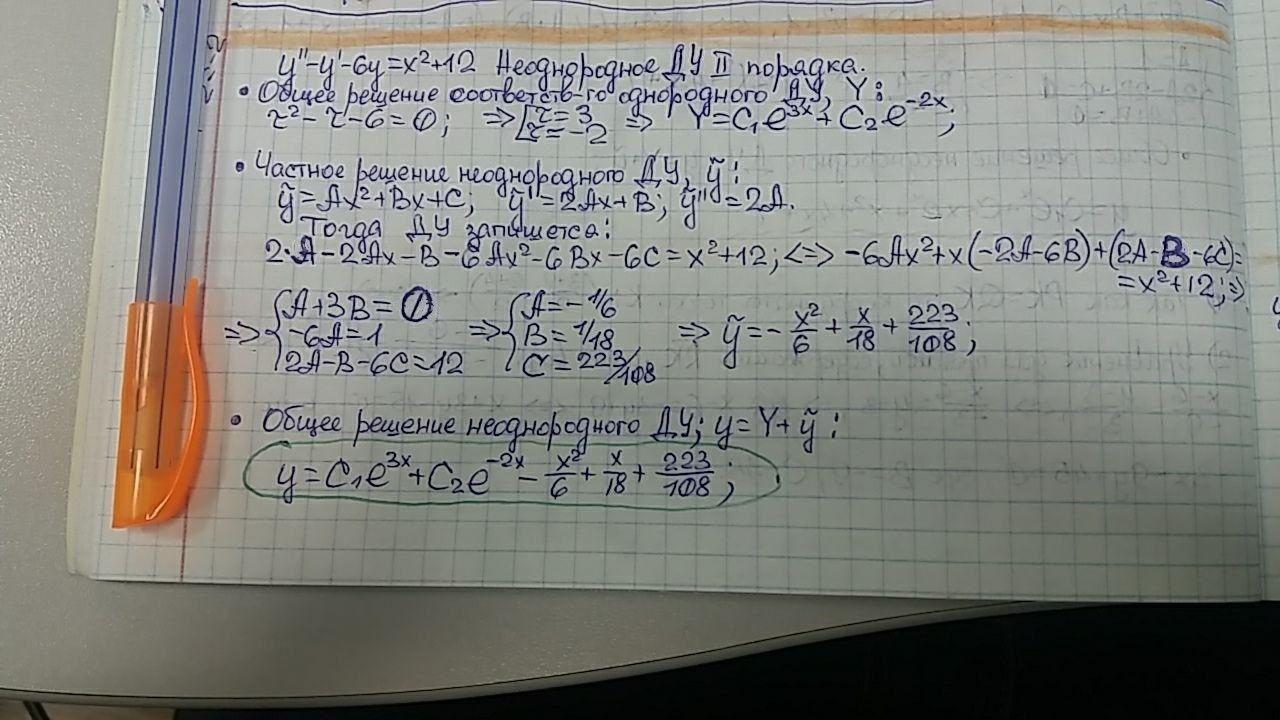 y''-y'-6y=x²+12 Неоднородное ДУ II порядка.
• Общее решение соответств-го однородного ДУ, Y:
r²-r-6=0; => [r=3 r=-2 => Y=C₁e^{3x}+C₂e^{-2x};
• Частное решение неоднородного ДУ, ỹ:
ỹ=Ax²+Bx+C; ỹ'=2Ax+B; ỹ''=2A.
Тогда ДУ запишется:
2·A-2Ax-B-6Ax²-6Bx-6C=x²+12; <=> -6Ax²+x(-2A-6B)+(2A-B-6C)=
=x²+12; =>
=> {A+3B=0 -6A=1 2A-B-6C=12 => {A=-1/6 B=1/18 C=223/108 => ỹ=-x²/6+x/18+223/108;
• Общее решение неоднородного ДУ; y=Y+ỹ:
y=C₁e^{3x}+C₂e^{-2x}-x²/6+x/18+223/108;